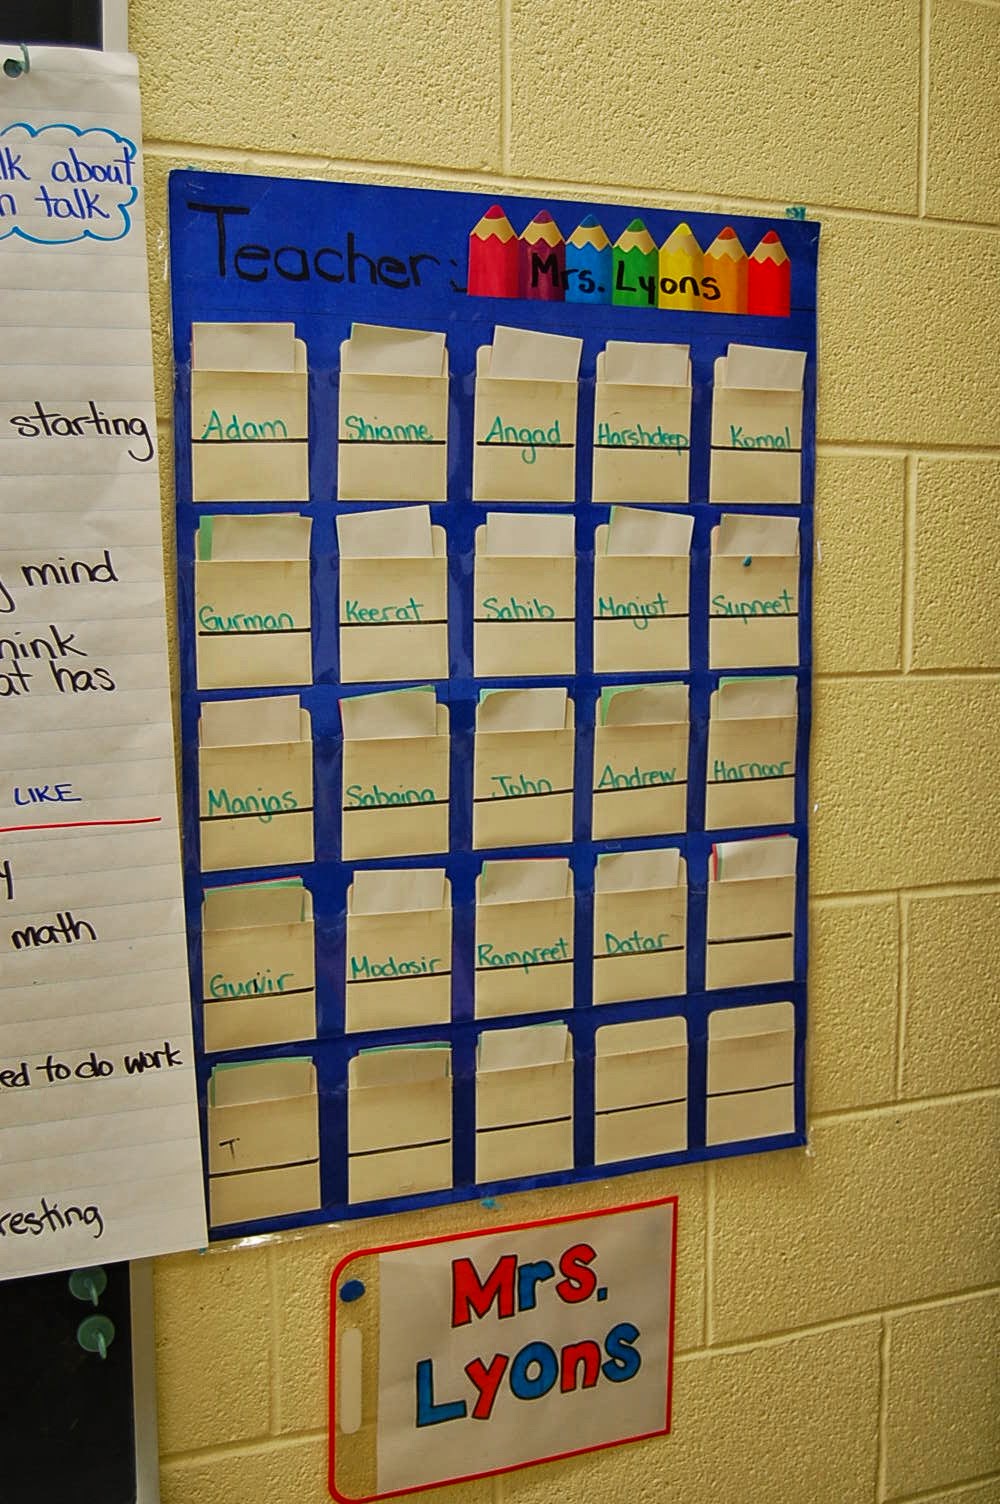 lk about
n talk
starting
mind
hink
at has
LIKE
y
math
ed to do work
resting
Teacher: Mrs. Lyons
Adam Shianne Angad Harshdeep Komal
Gurman Keerat Sahib Manjot Supneet
Manjas Sabaina John Andrew Harnoor
Gurvir Modasir Rampreet Datar
T
Mrs.
Lyons